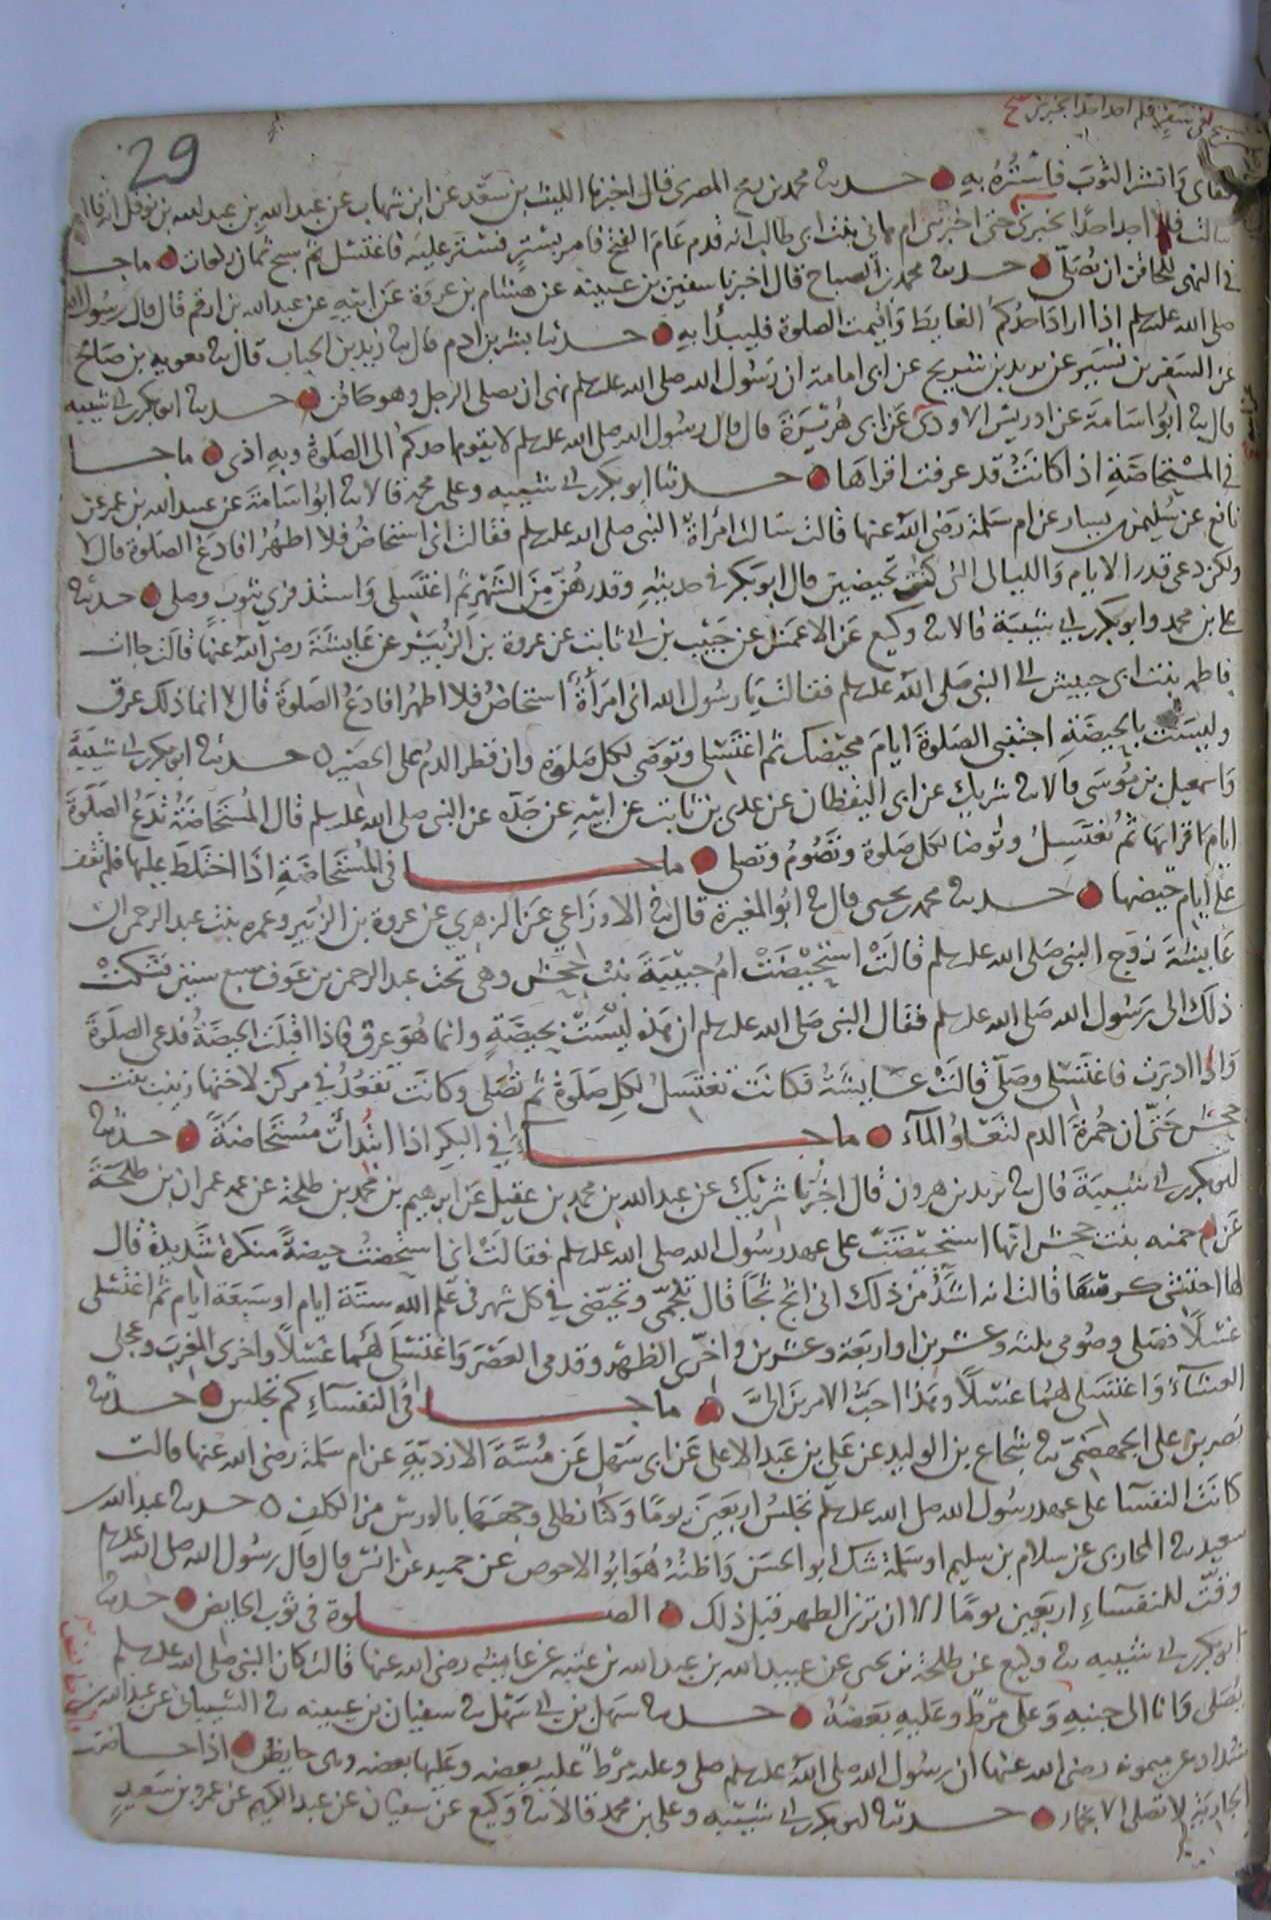 29
قفاى وانشر الثوب فاستره به حدثنا محمد بن رمح المصرى قال اخبرنا الليث بن سعد عن ابن شهاب عن عبد الله بن عبد الله بن نوفل انه قال
سالت فلم اجد احدا يخبرنى حتى اخبرتنى ام هانى بنت ابى طالب انه قدم عام الفتح فامر بستر فستر عليه فاغتسل ثم سبح ثمان ركعات ما جا
فى النهى للحاقن ان يصلى حدثنا محمد بن الصباح قال اخبرنا سفين بن عيينه عن هشام بن عروة عن ابيه عن عبد الله بن ارقم قال قال رسول الله
صلى الله عليه وسلم اذا اراد احدكم الغايط واقيمت الصلوة فليبدا به حدثنا بشر بن ادم قال ثنا زيد بن الحباب قال ثنا معويه بن صالح
عن السفر بن نسير عن يزيد بن شريح عن ابى امامة ان رسول الله صلى الله عليه وسلم نهى ان يصلى الرجل وهو حاقن حدثنا ابو بكر بن ابى شيبه
قال ثنا ابو اسامة عن ادريس الاودى عن ابى هريرة قال قال رسول الله صلى الله عليه وسلم لا يقوم احدكم الى الصلوة وبه اذى ما جا
فى المستحاضة اذا كانت قد عرفت اقراها حدثنا ابو بكر بن ابى شيبه وعلى بن محمد قالا ثنا ابو اسامة عن عبيد الله بن عمر عن
نافع عن سليمن بن يسار عن ام سلمة رضى الله عنها قالت سالت امرأة النبى صلى الله عليه وسلم فقالت انى استحاض فلا اطهر افادع الصلوة قال لا
ولكن دعى قدر الايام والليالى التى كنت تحيضين قال ابو بكر فى حديثه وقدرهن من الشهر ثم اغتسلى واستذفرى بثوب وصلى حدثنا
على بن محمد وابو بكر بن ابى شيبة قالا ثنا وكيع عن الاعمش عن حبيب بن ابى ثابت عن عروة بن الزبير عن عايشة رضى الله عنها قالت جاات
فاطمه بنت ابى حبيش الى النبى صلى الله عليه وسلم فقالت يا رسول الله انى امرأة استحاض فلا اطهر افادع الصلوة قال لا انما ذلك عرق
وليست بالحيضة اجتنبى الصلوة ايام محيضك ثم اغتسلى وتوضى لكل صلوة وان قطر الدم على الحصير حدثنا ابو بكر بن ابى شيبة
واسمعيل بن موسى قالا ثنا شريك عن ابى اليقظان عن عدى بن ثابت عن ابيه عن جده عن النبى صلى الله عليه وسلم قال المستحاضة تدع الصلوة
ايام اقرايها ثم تغتسل وتوضا لكل صلوة وتصوم وتصلى ما جا فى المستحاضة اذا اختلط عليها فلم تقف
على ايام حيضها حدثنا محمد بن يحيى قال ثنا ابو المغيرة قال ثنا الاوزاعى عن الزهري عن عروة بن الزبير وعمره بنت عبد الرحمن ان
عايشة زوج النبى صلى الله عليه وسلم قالت استحيضت ام حبيبة بنت جحش وهى تحت عبد الرحمن بن عوف سبع سنين فشكت
ذلك الى رسول الله صلى الله عليه وسلم فقال النبى صلى الله عليه وسلم ان هذه ليست بحيضة وانما هو عرق فاذا اقبلت الحيضة فدعى الصلوة
واذا ادبرت فاغتسلى وصلى قالت عايشة فكانت تغتسل لكل صلوة ثم تصلى وكانت تقعد فى مركن لاختها زينب بنت
جحش حتى ان حمرة الدم لتعلو المآء ما جاء فى البكر اذا ابتدأت مستحاضة حدثنا
ابو بكر بن ابى شيبة قال ثنا يزيد بن هرون قال اخبرنا شريك عن عبد الله بن محمد بن عقيل عن ابرهيم بن محمد بن طلحة عن عمه عمران بن طلحة
عن ام حمنه بنت جحش انها استحيضت على عهد رسول الله صلى الله عليه وسلم فقالت انى استحضت حيضة منكرة شديدة قال
لها احتشى كرسفا قالت انه اشد من ذلك انى اثج ثجا قال تلجمى وتحيضى فى كل شهر فى علم الله ستة ايام او سبعة ايام ثم اغتسلى
غسلا فصلى وصومى ثلثه وعشرين او اربعة وعشرين واخرى الظهر وقدمى العصر واغتسلى لهما غسلا واخرى المغرب وعجلى
العشآء واغتسلى لهما غسلا وهذا احب الامرين الى ما جا فى النفسآء كم تجلس حدثنا
نصر بن على الجهضمى ثنا شجاع بن الوليد عن على بن عبد الاعلى عن ابى سهل عن مسة الازدية عن ام سلمة رضى الله عنها قالت
كانت النفسا على عهد رسول الله صلى الله عليه وسلم تجلس اربعين يوما وكنا نطلى وجهها بالورس من الكلف حدثنا عبد الله بن
سعيد ثنا المحاربى عن سلام بن سليم او سلمة شك ابو الحسن واظنه هو ابو الاحوص عن حميد عن انس قال قال رسول الله صلى الله عليه وسلم
وقت للنفسآء اربعين يوما الا ان ترى الطهر قبل ذلك الصلوة فى ثوب الحايض حدثنا
ابو بكر بن ابى شيبه ثنا وكيع عن طلحة بن يحيى عن عبيد الله بن عبد الله بن عتبه عن عايشه رضى الله عنها قالت كان النبى صلى الله عليه وسلم
يصلى وانا الى جنبه وعلى مرط وعليه بعضه حدثنا سهل بن ابى سهل ثنا سفيان بن عيينه ثنا الشيبانى عن عبد الله بن
شداد عن ميمونه رضى الله عنها ان رسول الله صلى الله عليه وسلم صلى وعليه مرط عليه بعضه وعليها بعضه وهى حايض اذا حاضت
الجارية لا تصلى الا بخمار حدثنا ابو بكر بن ابى شيبه وعلى بن محمد قالا ثنا وكيع عن سفيان عن عبد الكريم عن عمرو بن سعيد